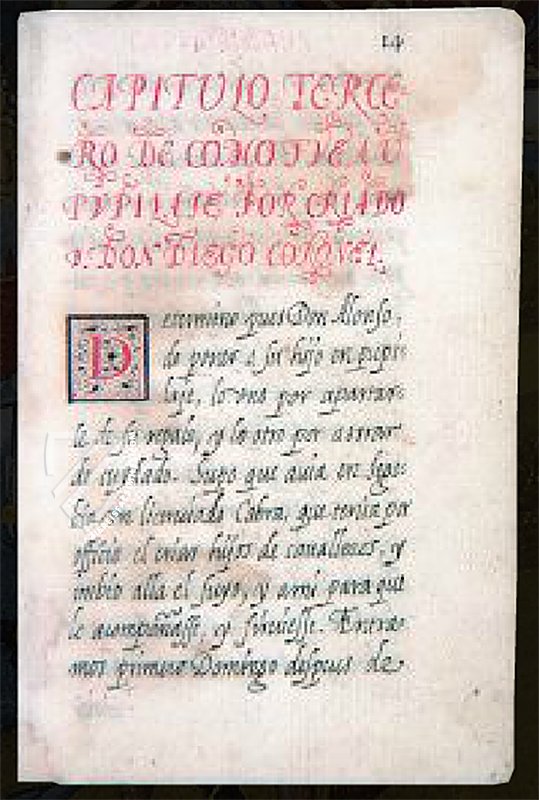 14
CAPITVLO TERCE-
RO DE COMO FVE AV
PVPILAJE POR CRIADO
D. DON DIEGO CORONEL.
Determino pues Don Alonso,
de poner a su hijo en pupi-
laje, lo vno por apartar-
le de su regalo, y lo otro por ahorrar
de cuydado. Supo que auia en Sego-
bia vn licenciado Cabra, que tenia por
officio el criar hijos de caualleros, y
imbio alla el suyo, y a mi para que
le acompañasse, y siruiesse. Entra-
mos primero Domingo despues de